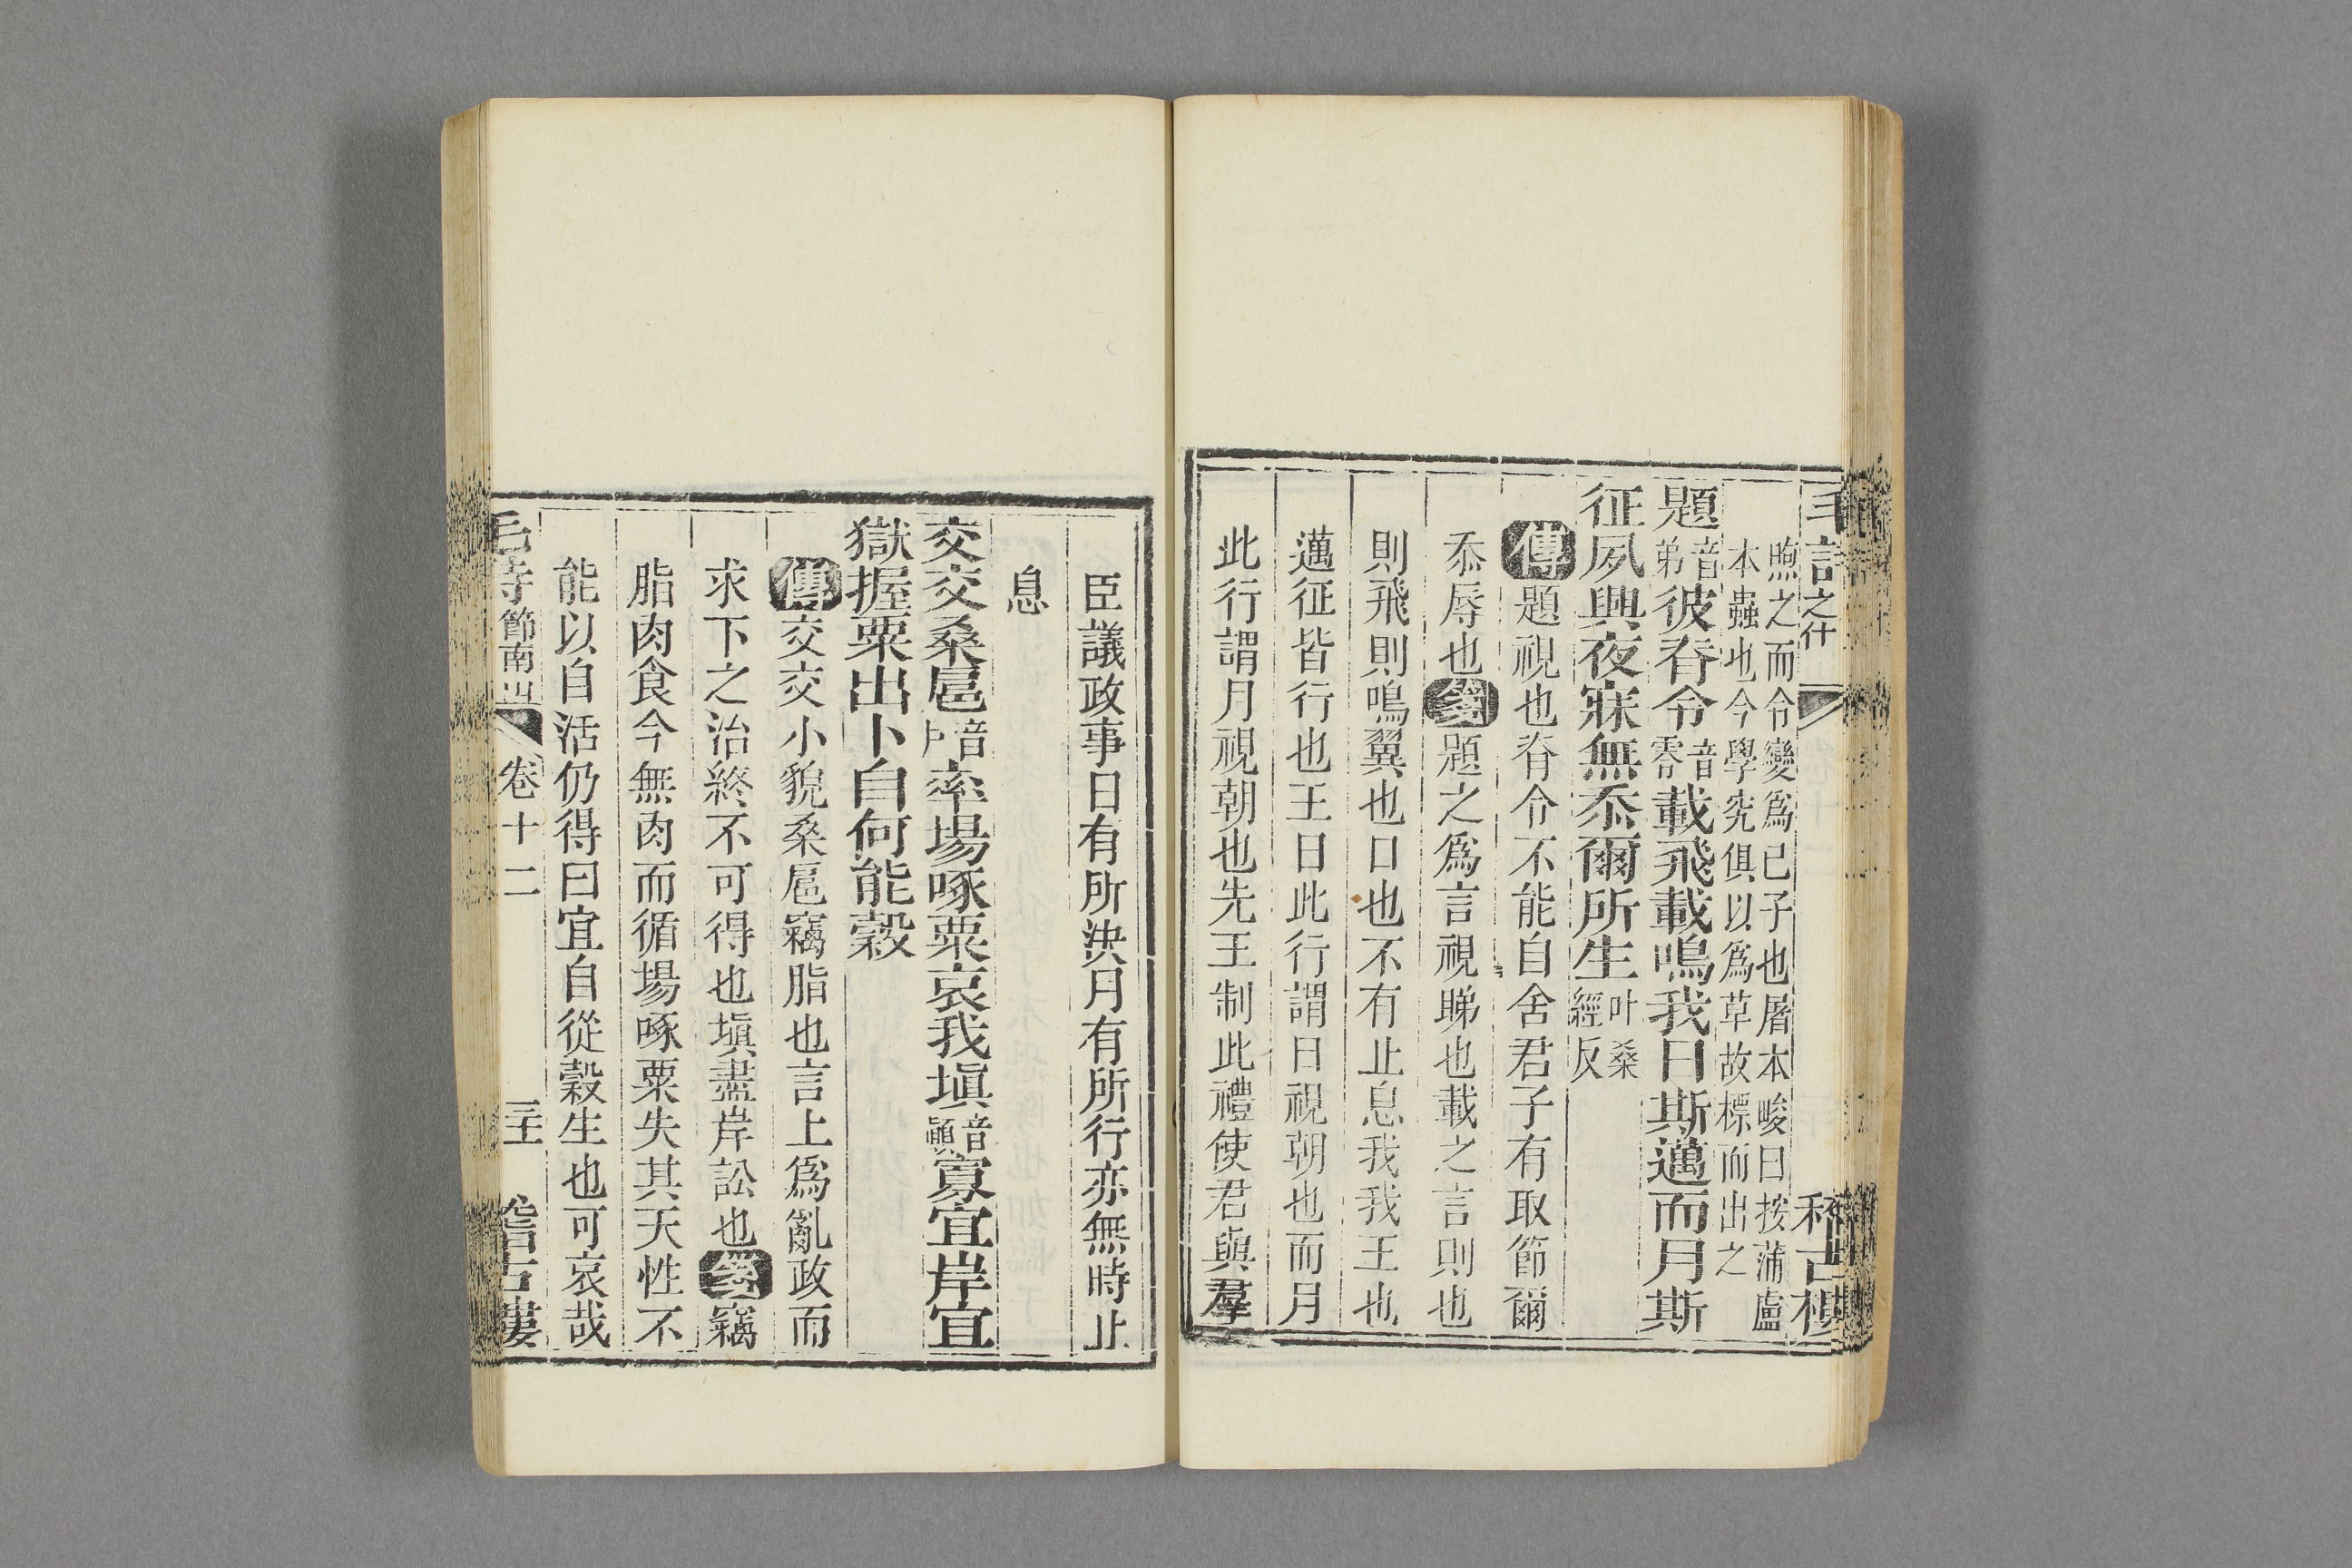 毛詩之什
稽古樓
煦之而令變爲己子也屠本畯曰按蒲盧
本蟲也今學究俱以爲草故標而出之
題音弟彼脊令音零載飛載鳴我日斯邁而月斯
征夙興夜寐無忝爾所生叶桑經反
傳題視也脊令不能自舍君子有取節爾
忝辱也箋題之爲言視睇也載之言則也
則飛則鳴翼也口也不有止息我我王也
邁征皆行也王日此行謂日視朝也而月
此行謂月視朝也先王制此禮使君與羣
臣議政事日有所決月有所行亦無時止
息
交交桑扈音戶率場啄粟哀我塡音顚寡宜岸宜
獄握粟出卜自何能穀
傳交交小貌桑扈竊脂也言上爲亂政而
求下之治終不可得也塡盡岸訟也箋竊
脂肉食今無肉而循場啄粟失其天性不
能以自活仍得曰宜自從穀生也可哀哉
毛詩節南山 卷十二
稽古樓